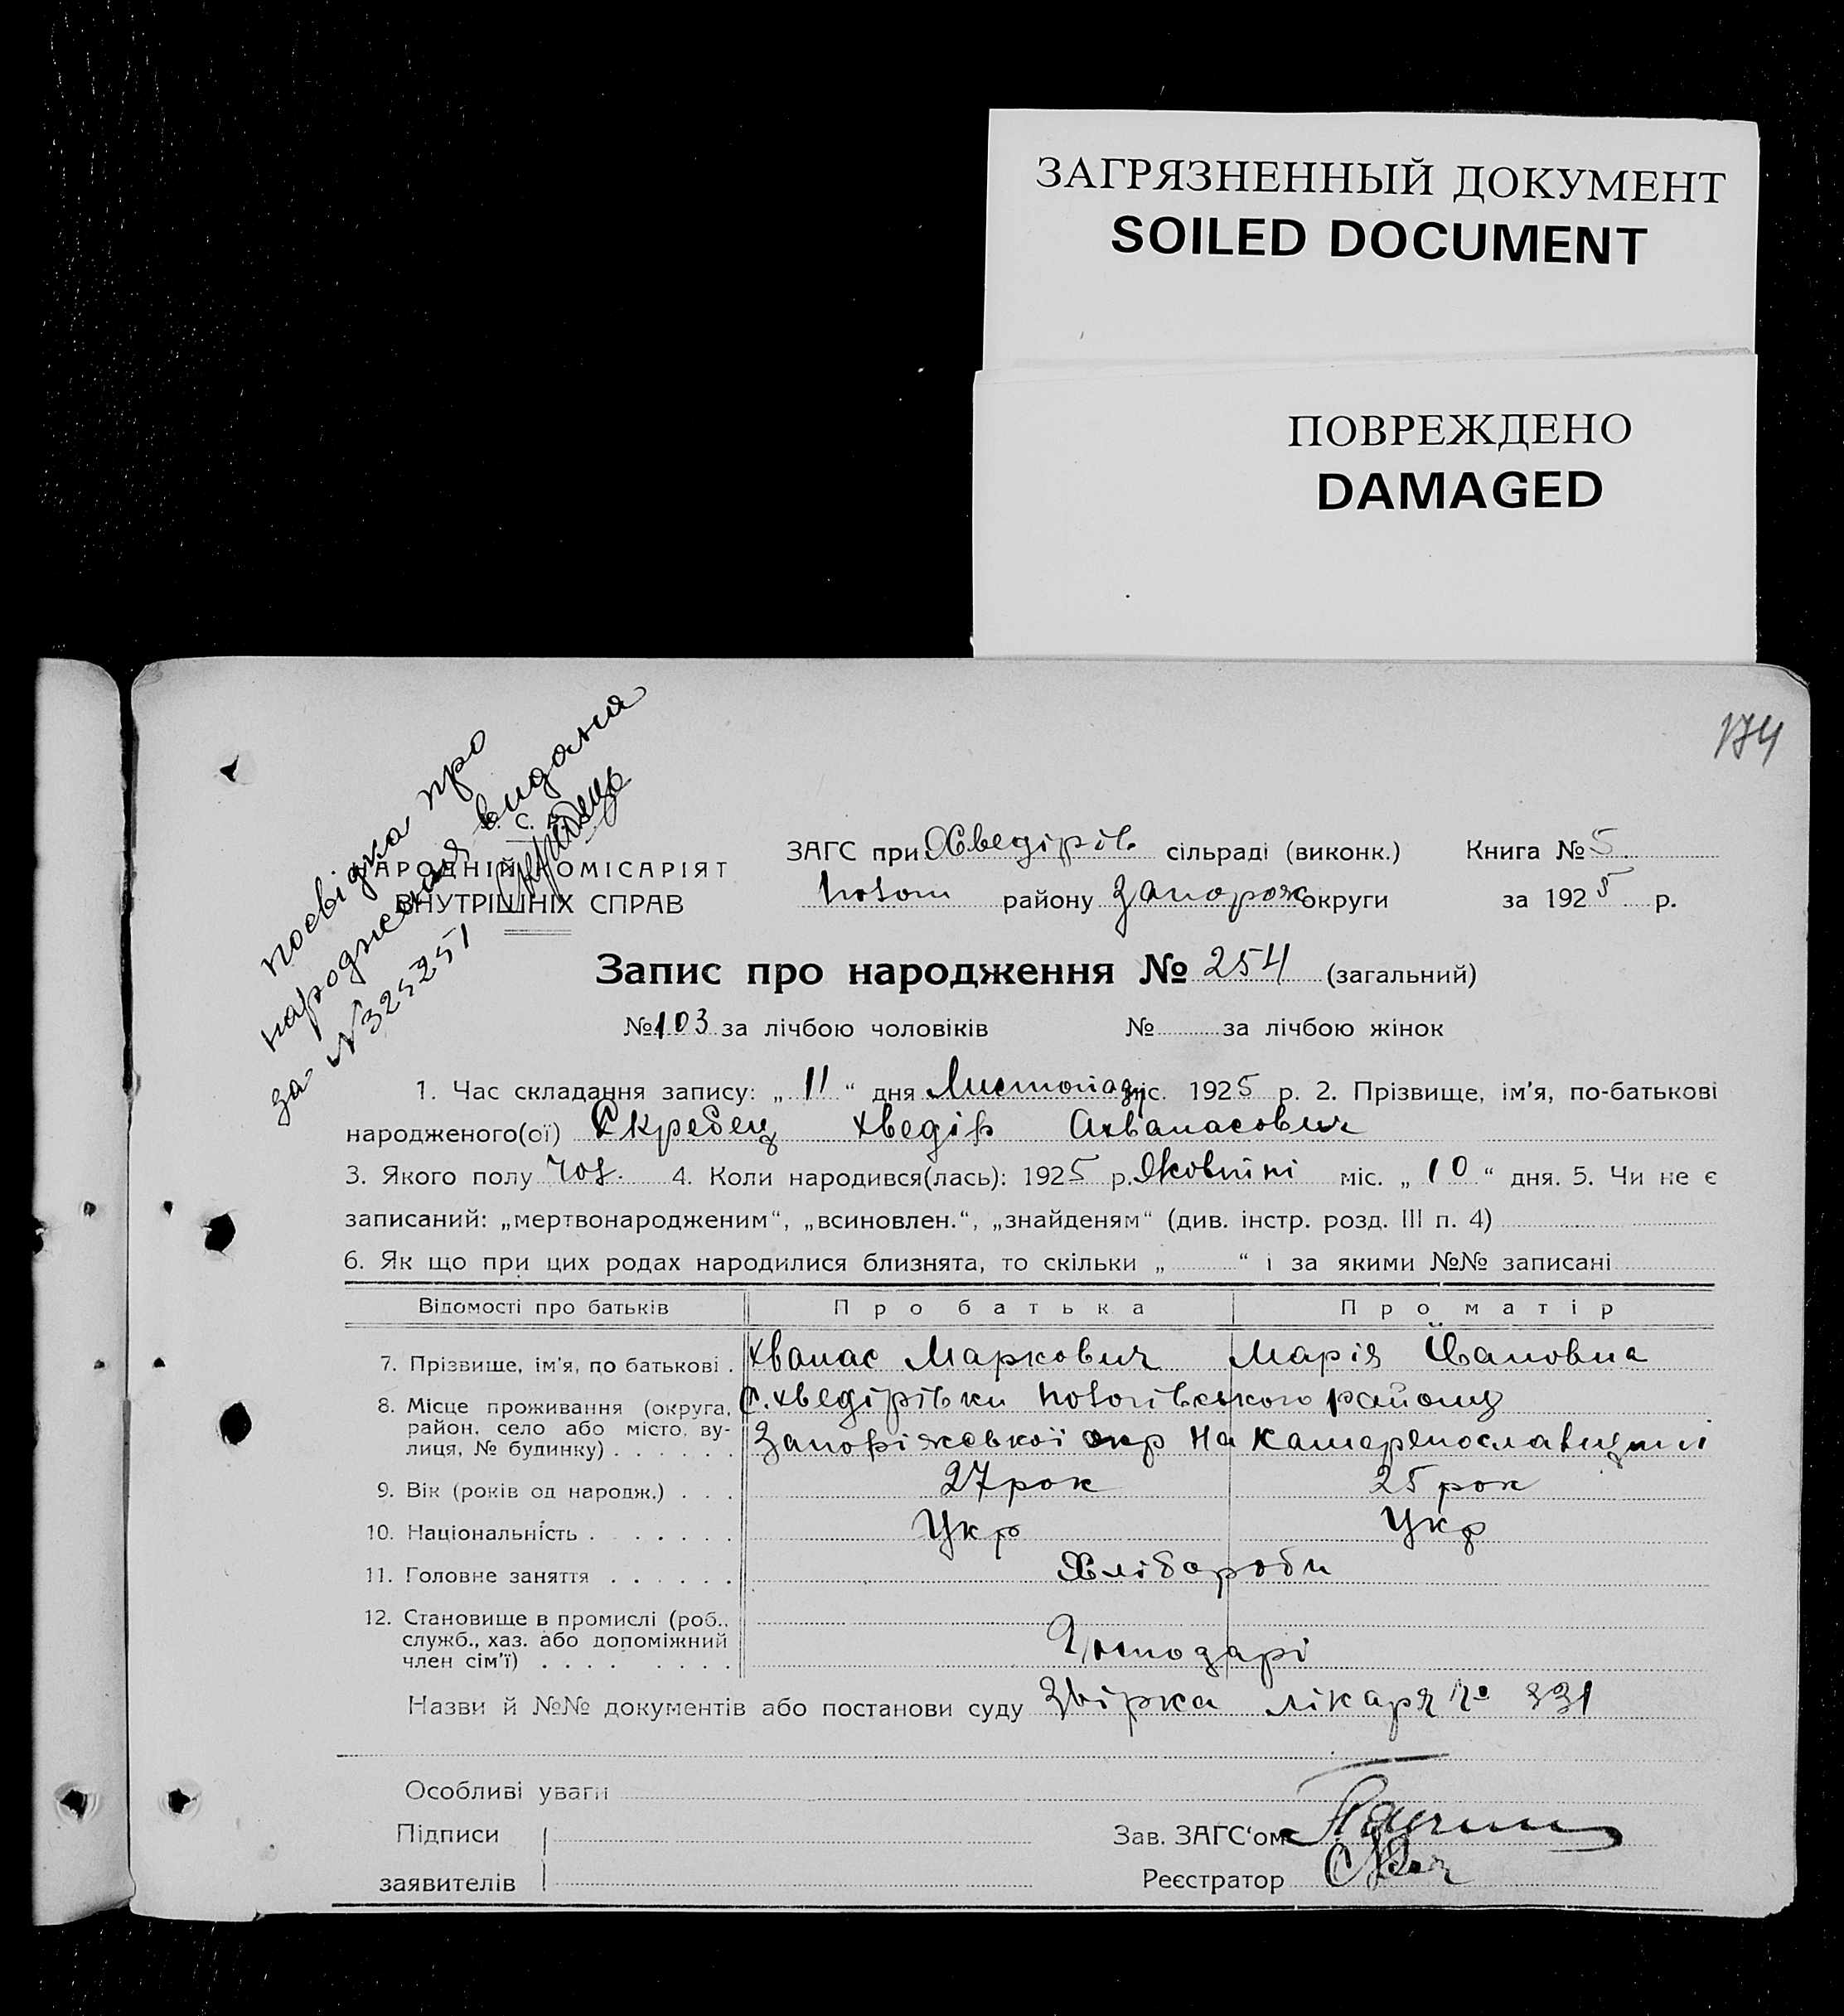 ЗАГРЯЗНЕННЫЙ ДОКУМЕНТ
SOILED DOCUMENT
ПОВРЕЖДЕНО
DAMAGED
174
посвідка про
народження видана
за №325251
С.
НАРОДНІЙ КОМІСАРІЯТ
ВНУТРІШНІХ СПРАВ
ЗАГС при Хведірів. сільраді (виконк.) Книга № 5
району Запорож округи за 1925 р.
Запис про народження № 254 (загальний)
№ 103 за лічбою чоловіків № за лічбою жінок
1. Час складання запису: „ 11 “ дня Листопад міс. 1925 р. 2. Прізвище, ім'я, по-батькові
народженого(ої) Скребец Хведір Ахванасович
3. Якого полу чол. 4. Коли народився(лась): 1925 р. Жовтні міс. „ 10 “ дня. 5. Чи не є
записаний: „мертвонародженим“, „всиновлен.“, „знайденям“ (див. інстр. розд. III п. 4)
6. Як що при цих родах народилися близнята, то скільки „ “ і за якими №№ записані
Відомості про батьків Про батька Про матір
7. Прізвище, ім'я, по батькові . Хванас Маркович Марія Івановна
8. Місце проживання (округа, С. Хведірівки району
район, село або місто, ву- Запоріжської окр на Катеринославщині
лиця, № будинку) . . . . . .
9. Вік (років од народж.) . . . 27 рок 25 рок
10. Національність . . . . . . . Укр Укр
11. Головне заняття . . . . . . Хлібароби
12. Становище в промислі (роб.,
служб., хаз. або допоміжний Господарі
член сім'ї) . . . . . . . .
Назви й №№ документів або постанови суду Звірка лікаря № 331
Особливі уваги
Підписи
Зав. ЗАГС'ом
заявителів
Реєстратор